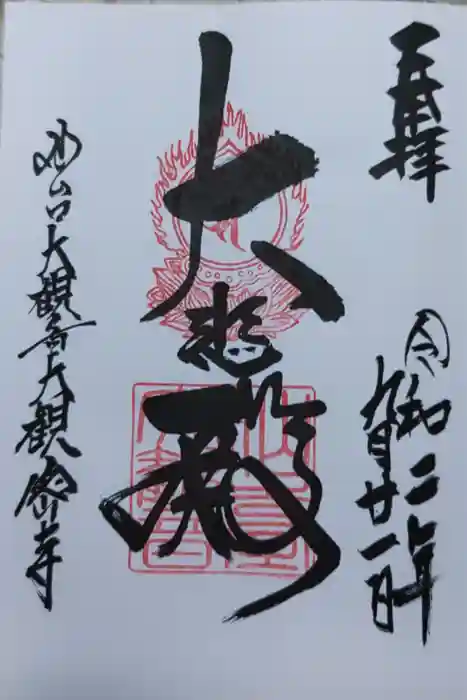 奉拝
令和二年
九月廿一日
大悲殿
仙台大観音大観密寺